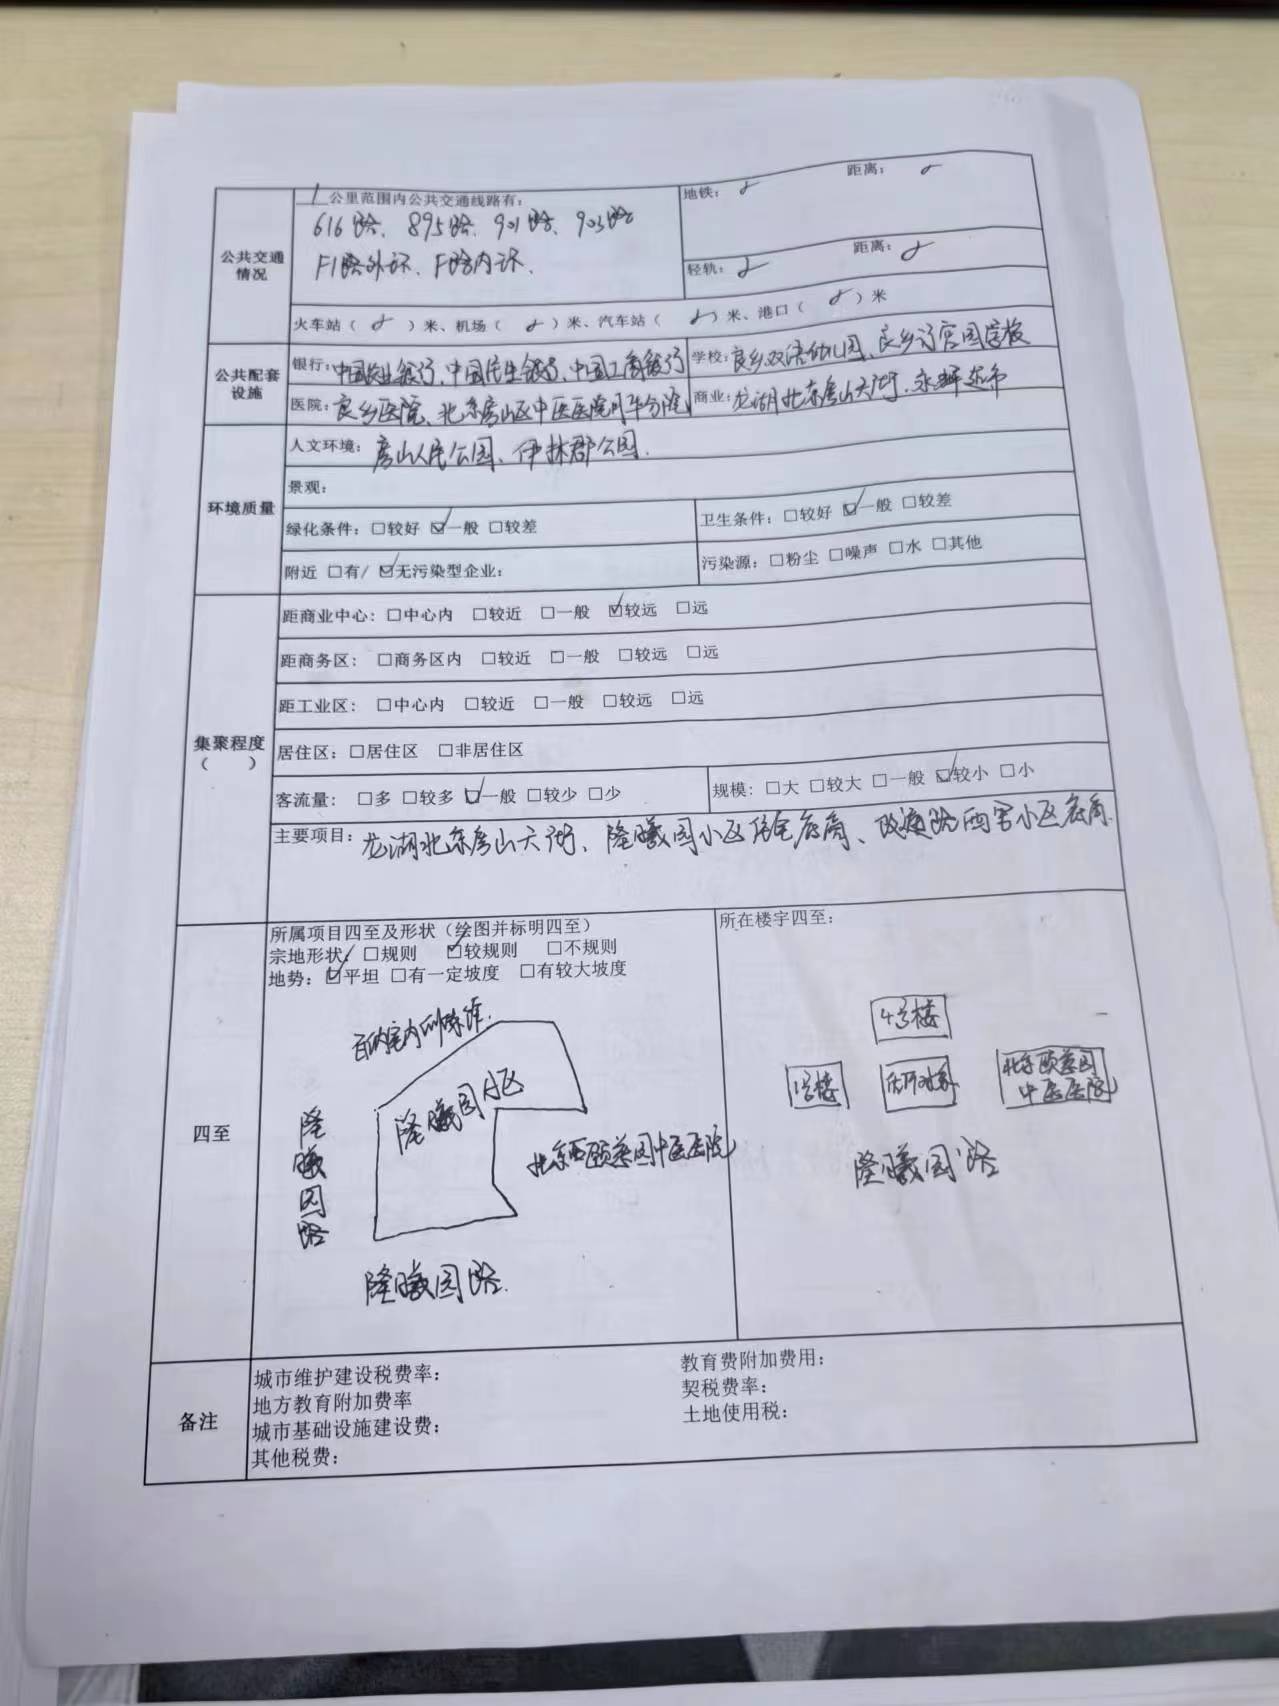 1 公里范围内公共交通线路有：
616路、895路、901路、903路
F1路外环、F路内环.
地铁： 距离：
轻轨： 距离：
公共交通情况
火车站（ ）米、机场（ ）米、汽车站（ ）米、港口（ ）米
公共配套设施
银行：中国农业银行、中国民生银行、中国工商银行
学校：良乡双语幼儿园、良乡行宫园学校
医院：良乡医院、北京房山区中医医院
商业：龙湖北京房山天街、永辉超市
环境质量
人文环境：房山人民公园、伊林郡公园.
景观：
绿化条件：□较好 ☑一般 □较差
卫生条件：□较好 ☑一般 □较差
附近 □有/ ☑无污染型企业：
污染源：□粉尘 □噪声 □水 □其他
集聚程度
（ ）
距商业中心：□中心内 □较近 □一般 ☑较远 □远
距商务区： □商务区内 □较近 □一般 □较远 □远
距工业区： □中心内 □较近 □一般 □较远 □远
居住区：□居住区 □非居住区
客流量： □多 □较多 ☑一般 □较少 □少
规模：□大 □较大 □一般 ☑较小 □小
主要项目：龙湖北京房山天街、隆曦园小区住宅底商、西里小区底商.
四至
所属项目四至及形状（绘图并标明四至）
宗地形状：□规则 ☑较规则 □不规则
地势：☑平坦 □有一定坡度 □有较大坡度
室内
隆曦园小区
隆曦园路
北京西颐慈园中医医院
隆曦园路.
所在楼宇四至：
4号楼
1号楼
估价对象
北京颐慈园
中医医院
隆曦园路
备注
城市维护建设税费率：
教育费附加费用：
地方教育附加费率
契税费率：
城市基础设施建设费：
土地使用税：
其他税费：